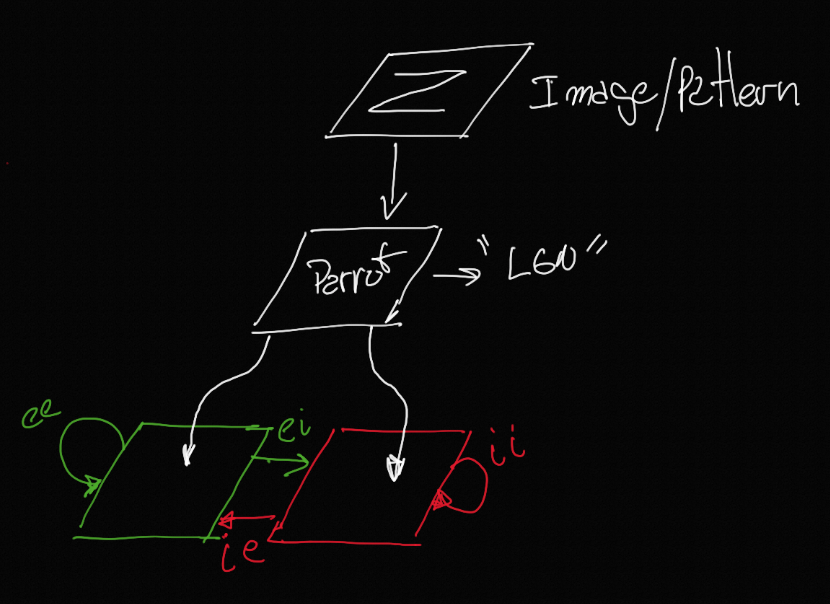 Z
Image/Pattern
Parrot
"LGN"
ee
ei
ii
ie